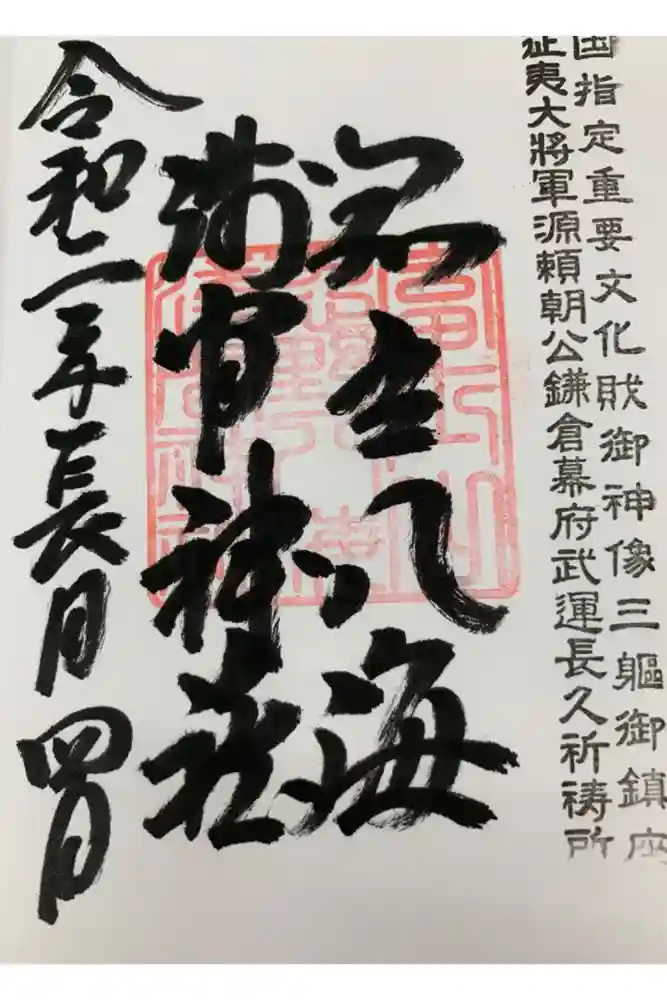 国指定重要文化財御神像三軀御鎮座
征夷大將軍源頼朝公鎌倉幕府武運長久祈祷所
八海
浅間神社
令和一年長月四日